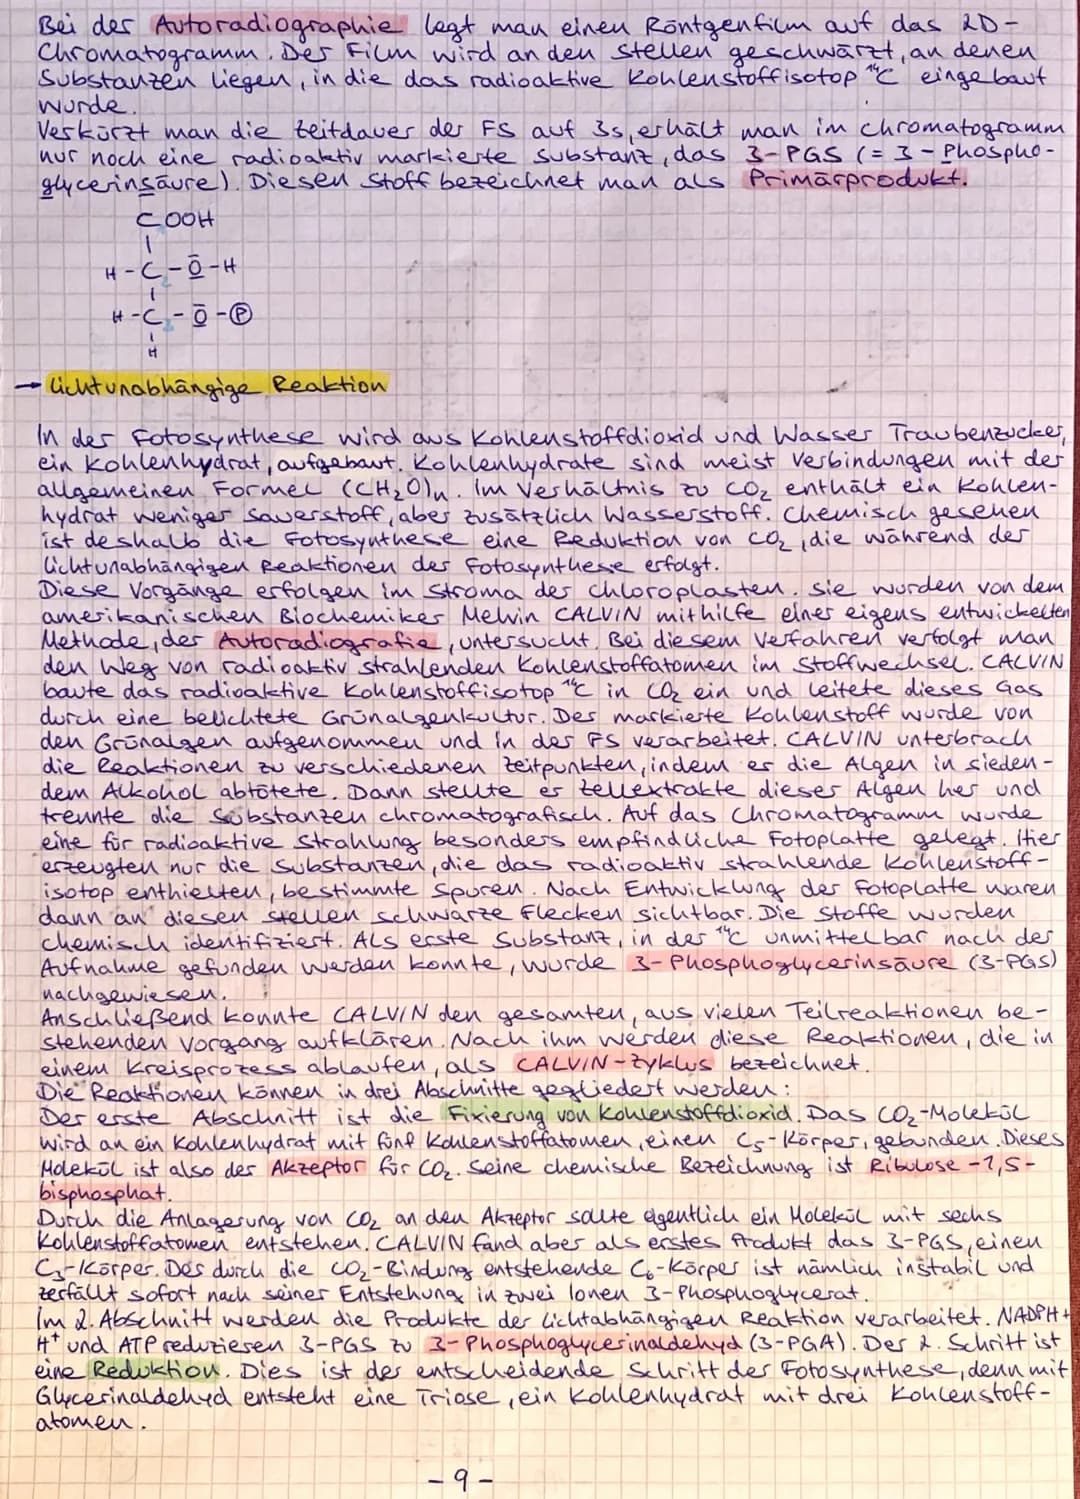 Bei der Autoradiographie legt man einen Röntgenfilm auf das 2D-
Chromatogramm. Der Film wird an den Stellen geschwärzt, an denen
Substanzen liegen, in die das radioaktive Kohlenstoffisotop ¹⁴C eingebaut
wurde.
Verkürzt man die Zeitdauer der FS auf 3s, erhält man im Chromatogramm
nur noch eine radioaktiv markierte Substanz, das 3-PGS (= 3-Phospho-
glycerinsäure). Diesen Stoff bezeichnet man als Primärprodukt.
COOH
|
H-C-O-H
|
H-C-O-Ⓟ
|
H
→ lichtunabhängige Reaktion
In der Fotosynthese wird aus Kohlenstoffdioxid und Wasser Traubenzucker,
ein Kohlenhydrat, aufgebaut. Kohlenhydrate sind meist Verbindungen mit der
allgemeinen Formel (CH₂O)n. Im Verhältnis zu CO₂ enthält ein Kohlen-
hydrat weniger Sauerstoff, aber zusätzlich Wasserstoff. Chemisch gesehen
ist deshalb die Fotosynthese eine Reduktion von CO₂, die während der
lichtunabhängigen Reaktionen der Fotosynthese erfolgt.
Diese Vorgänge erfolgen im Stroma der Chloroplasten. Sie wurden von dem
amerikanischen Biochemiker Melvin CALVIN mithilfe einer eigens entwickelten
Methode, der Autoradiografie, untersucht. Bei diesem Verfahren verfolgt man
den Weg von radioaktiv strahlenden Kohlenstoffatomen im Stoffwechsel. CALVIN
baute das radioaktive Kohlenstoffisotop ¹⁴C in CO₂ ein und leitete dieses Gas
durch eine belichtete Grünalgenkultur. Der markierte Kohlenstoff wurde von
den Grünalgen aufgenommen und in der FS verarbeitet. CALVIN unterbrach
die Reaktionen zu verschiedenen Zeitpunkten, indem er die Algen in sieden-
dem Alkohol abtötete. Dann stellte er Zellextrakte dieser Algen her und
trennte die Substanzen chromatografisch. Auf das Chromatogramm wurde
eine für radioaktive Strahlung besonders empfindliche Fotoplatte gelegt. Hier
erzeugten nur die Substanzen, die das radioaktiv strahlende Kohlenstoff-
isotop enthielten, bestimmte Spuren. Nach Entwicklung der Fotoplatte waren
dann an diesen Stellen schwarze Flecken sichtbar. Die Stoffe wurden
chemisch identifiziert. Als erste Substanz, in der ¹⁴C unmittelbar nach der
Aufnahme gefunden werden konnte, wurde 3-Phosphoglycerinsäure (3-PGS)
nachgewiesen.
Anschließend konnte CALVIN den gesamten, aus vielen Teilreaktionen be-
stehenden Vorgang aufklären. Nach ihm werden diese Reaktionen, die in
einem Kreisprozess ablaufen, als CALVIN-Zyklus bezeichnet.
Die Reaktionen können in drei Abschnitte gegliedert werden:
Der erste Abschnitt ist die Fixierung von Kohlenstoffdioxid. Das CO₂-Molekül
wird an ein Kohlenhydrat mit fünf Kohlenstoffatomen, einen C₅-Körper, gebunden. Dieses
Molekül ist also der Akzeptor für CO₂. Seine chemische Bezeichnung ist Ribulose-1,5-
bisphosphat.
Durch die Anlagerung von CO₂ an den Akzeptor sollte eigentlich ein Molekül mit sechs
Kohlenstoffatomen entstehen. CALVIN fand aber als erstes Produkt das 3-PGS, einen
C₃-Körper. Der durch die CO₂-Bindung entstehende C₆-Körper ist nämlich instabil und
zerfällt sofort nach seiner Entstehung in zwei Ionen 3-Phosphoglycerat.
Im 2. Abschnitt werden die Produkte der lichtabhängigen Reaktion verarbeitet. NADPH+
H⁺ und ATP reduzieren 3-PGS zu 3-Phosphoglycerinaldehyd (3-PGA). Der 2. Schritt ist
eine Reduktion. Dies ist der entscheidende Schritt der Fotosynthese, denn mit
Glycerinaldehyd entsteht eine Triose, ein Kohlenhydrat mit drei Kohlenstoff-
atomen.
- 9 -